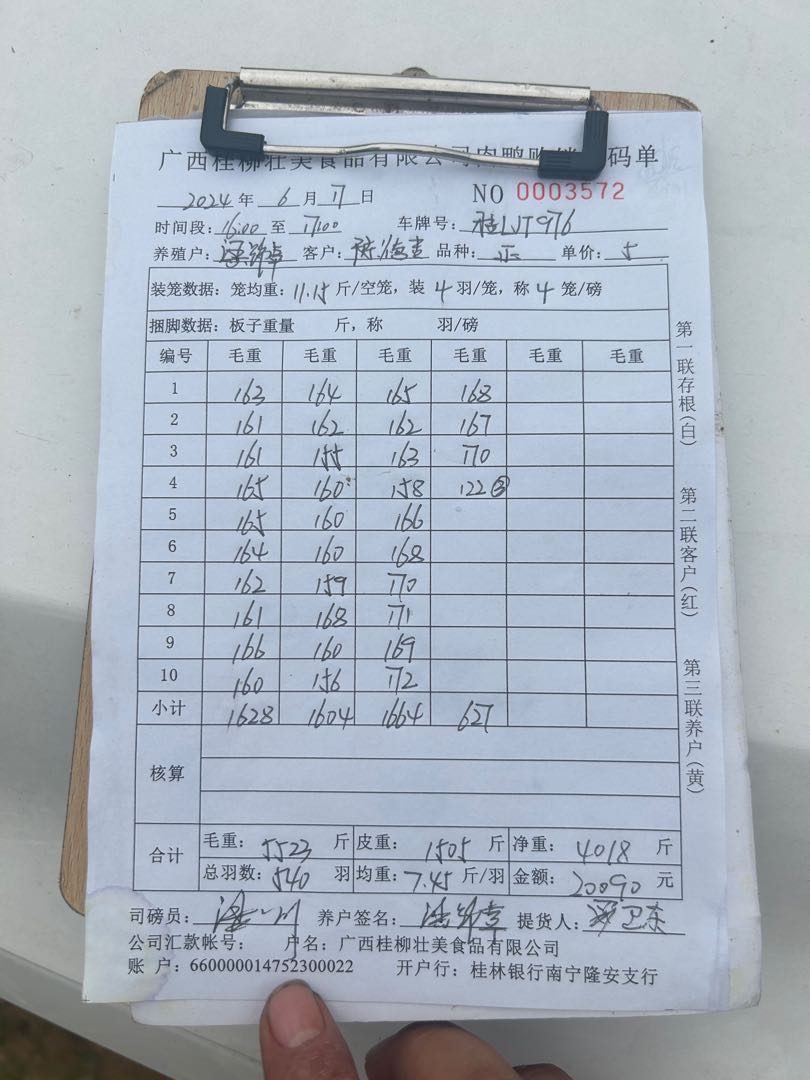 广西桂柳壮美食品有限公司肉鸭购销 码单
2024 年 6 月 17 日 NO 0003572
时间段: 16:00 至 17:00 车牌号: 桂LJT976
养殖户: 客户: 品种: 单价: 5
装笼数据: 笼均重: 11.15 斤/空笼, 装 4 羽/笼, 称 4 笼/磅
捆脚数据: 板子重量 斤, 称 羽/磅
编号 毛重 毛重 毛重 毛重 毛重 毛重
1 163 164 165 168
2 161 162 162 167
3 161 155 163 170
4 165 160 158 122 ③
5 165 160 166
6 164 160 168
7 162 159 170
8 161 168 171
9 166 160 169
10 160 156 172
小计 1628 1604 1664 627
核算
合计 毛重: 5523 斤 皮重: 1505 斤 净重: 4018 斤
总羽数: 540 羽 均重: 7.45 斤/羽 金额: 20090 元
司磅员: 养户签名: 提货人:
公司汇款帐号: 户名: 广西桂柳壮美食品有限公司
账 户: 660000014752300022 开户行: 桂林银行南宁隆安支行
第一联存根(白)
第二联客户(红)
第三联养户(黄)